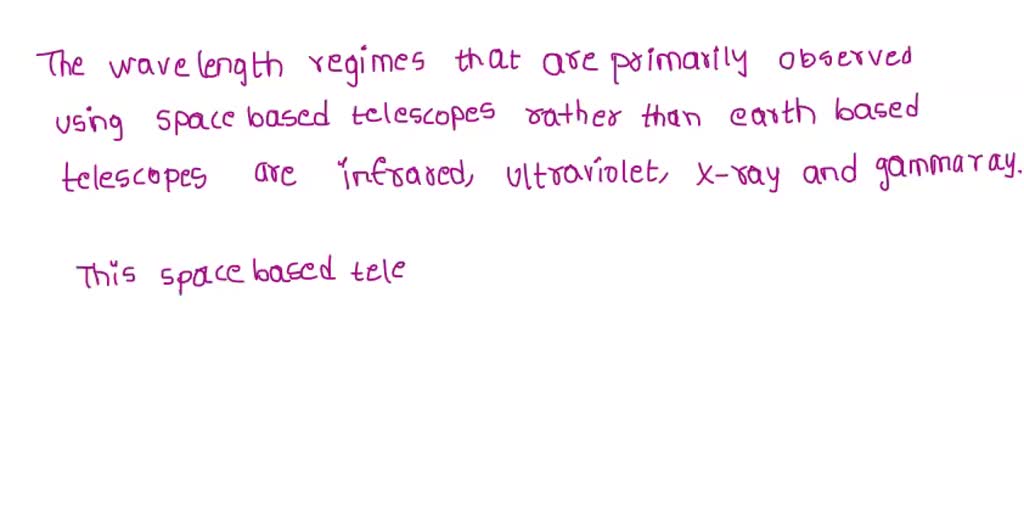 The wavelength regimes that are primarily observed
using space based telescopes rather than earth based
telescopes are infrared, ultraviolet, x-ray and gammaray.
This space based tele